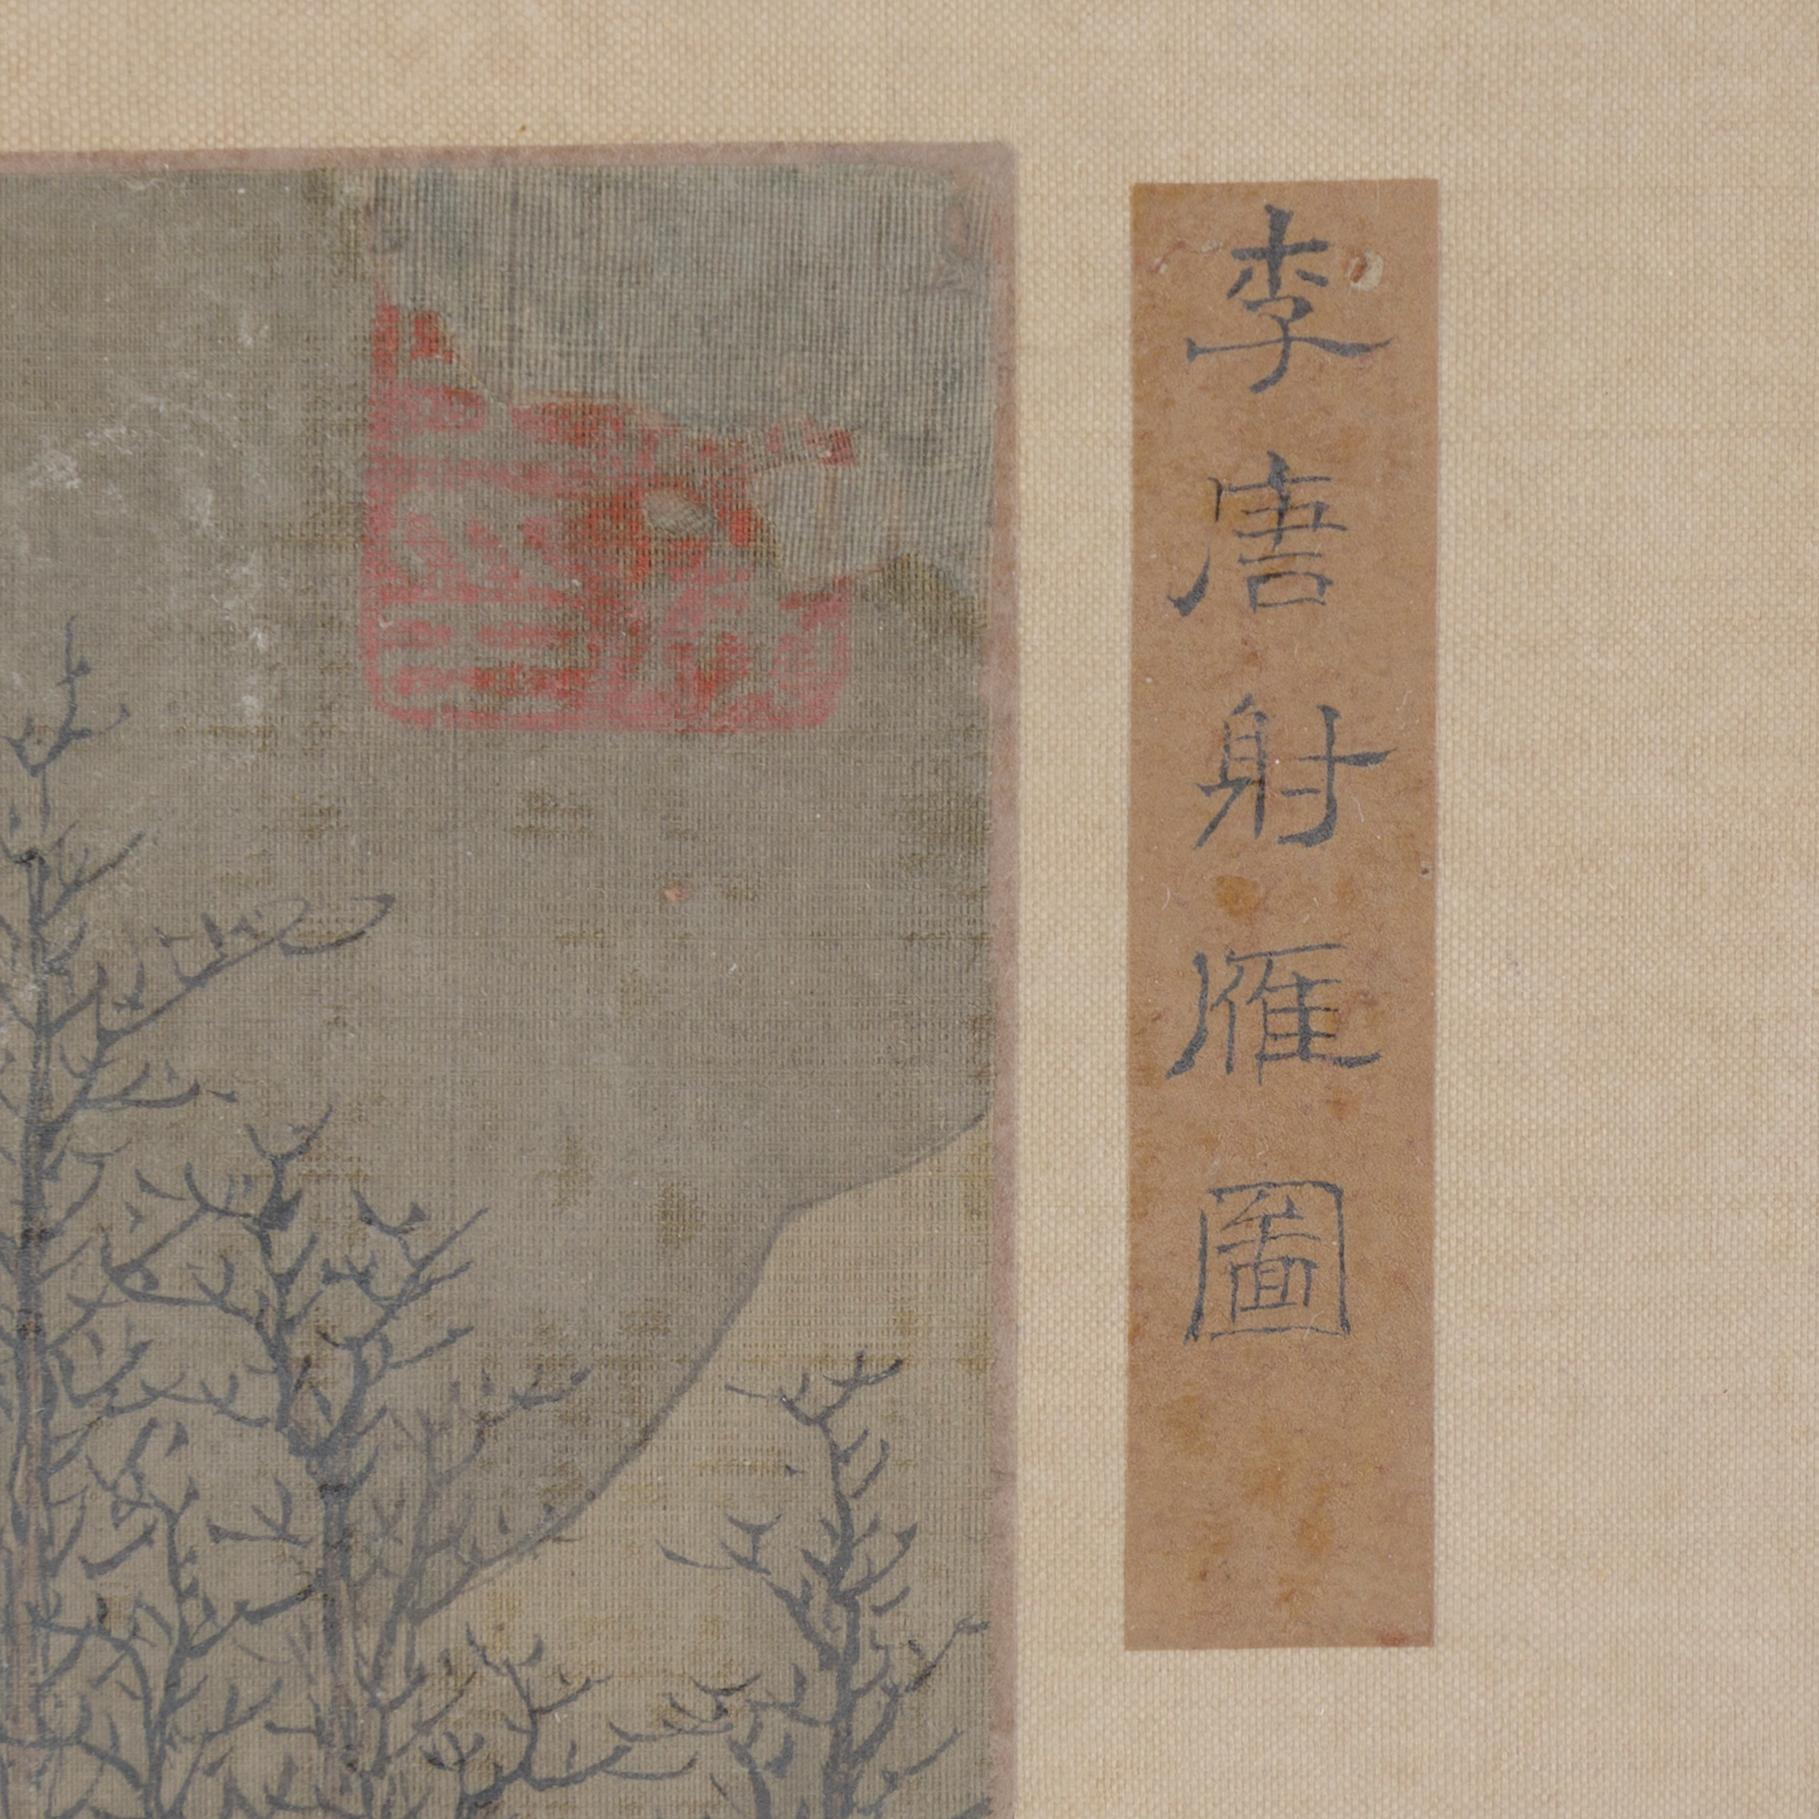 李唐射雁圖